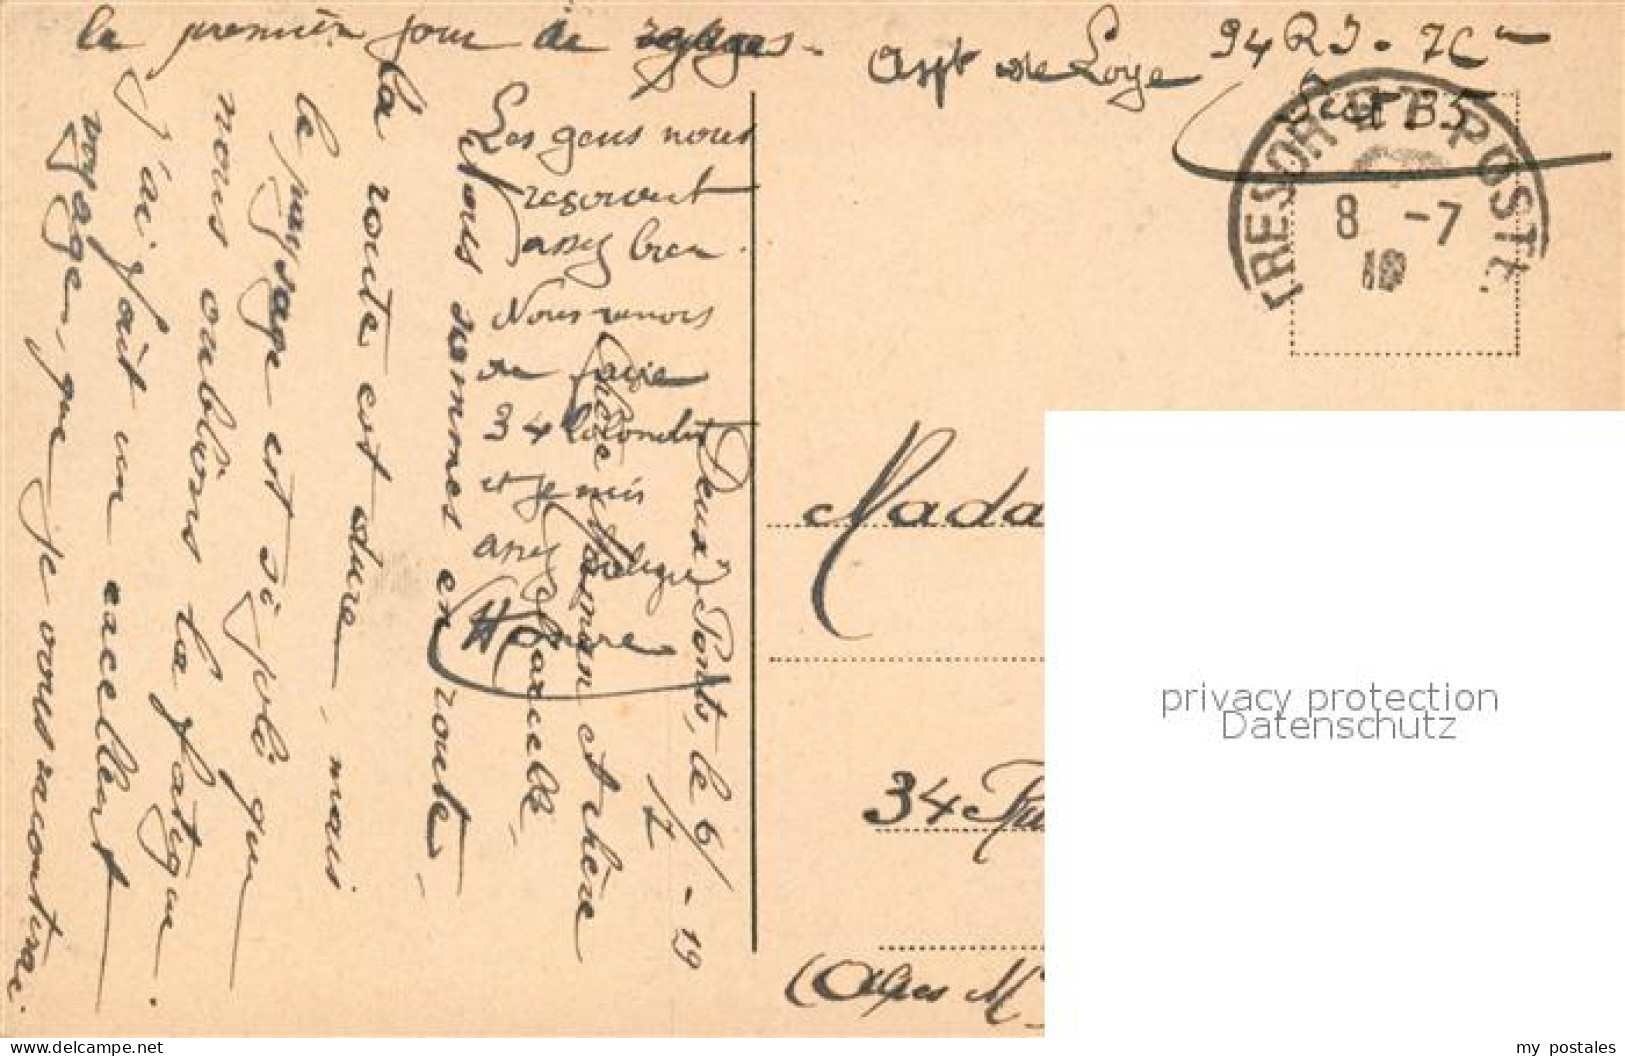 le premier jour de
Aspt de Loye 94 R I. 7C
Sect B5
TRESOR ET POSTE
8 -7
19
Deux Ponts, le 6/7-19
Maman et chère
Marcelle,
Nous sommes en route,
la route est dure, mais
le paysage est si joli que
nous oublions la fatigue.
J'ai fait un excellent
voyage, que je vous raconterai
Les gens nous
reçoivent
assez bien.
Nous venons
de faire
34
et je suis
assez
Honoré
Mada
34 Ru
(Alpes M
privacy protection
Datenschutz
www.delcampe.net
my_postales